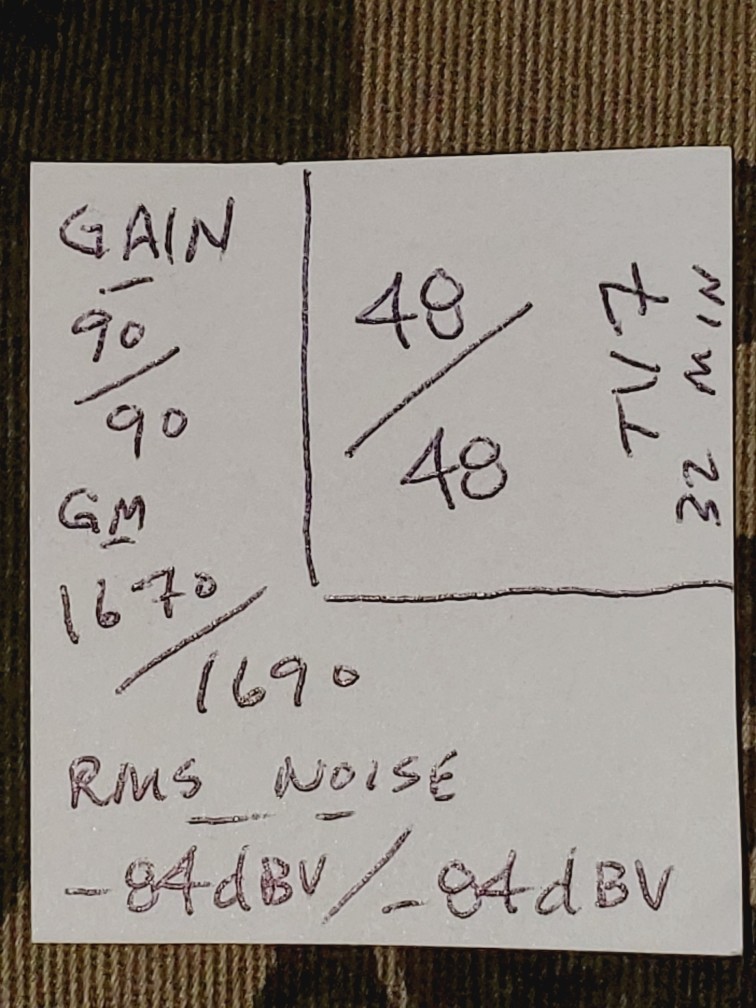 GAIN
90/90
GM
1670/1690
RMS NOISE
-84dBV/-84dBV
48/48
TV7
32 MIN